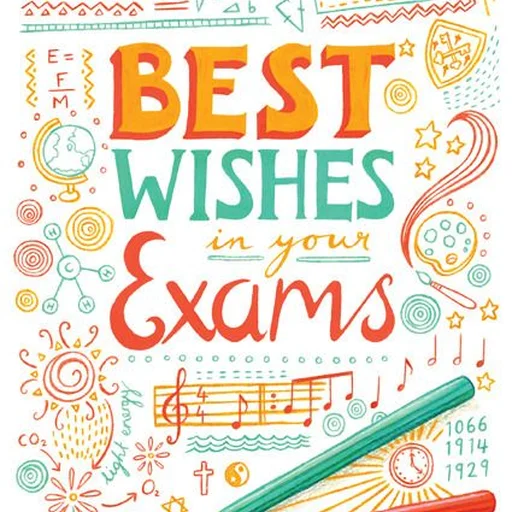 E=
F
M
BEST
WISHES
in your
Exams
H
H
C
H
H
4
4
light energy
CO2
O2
1066
1914
1929